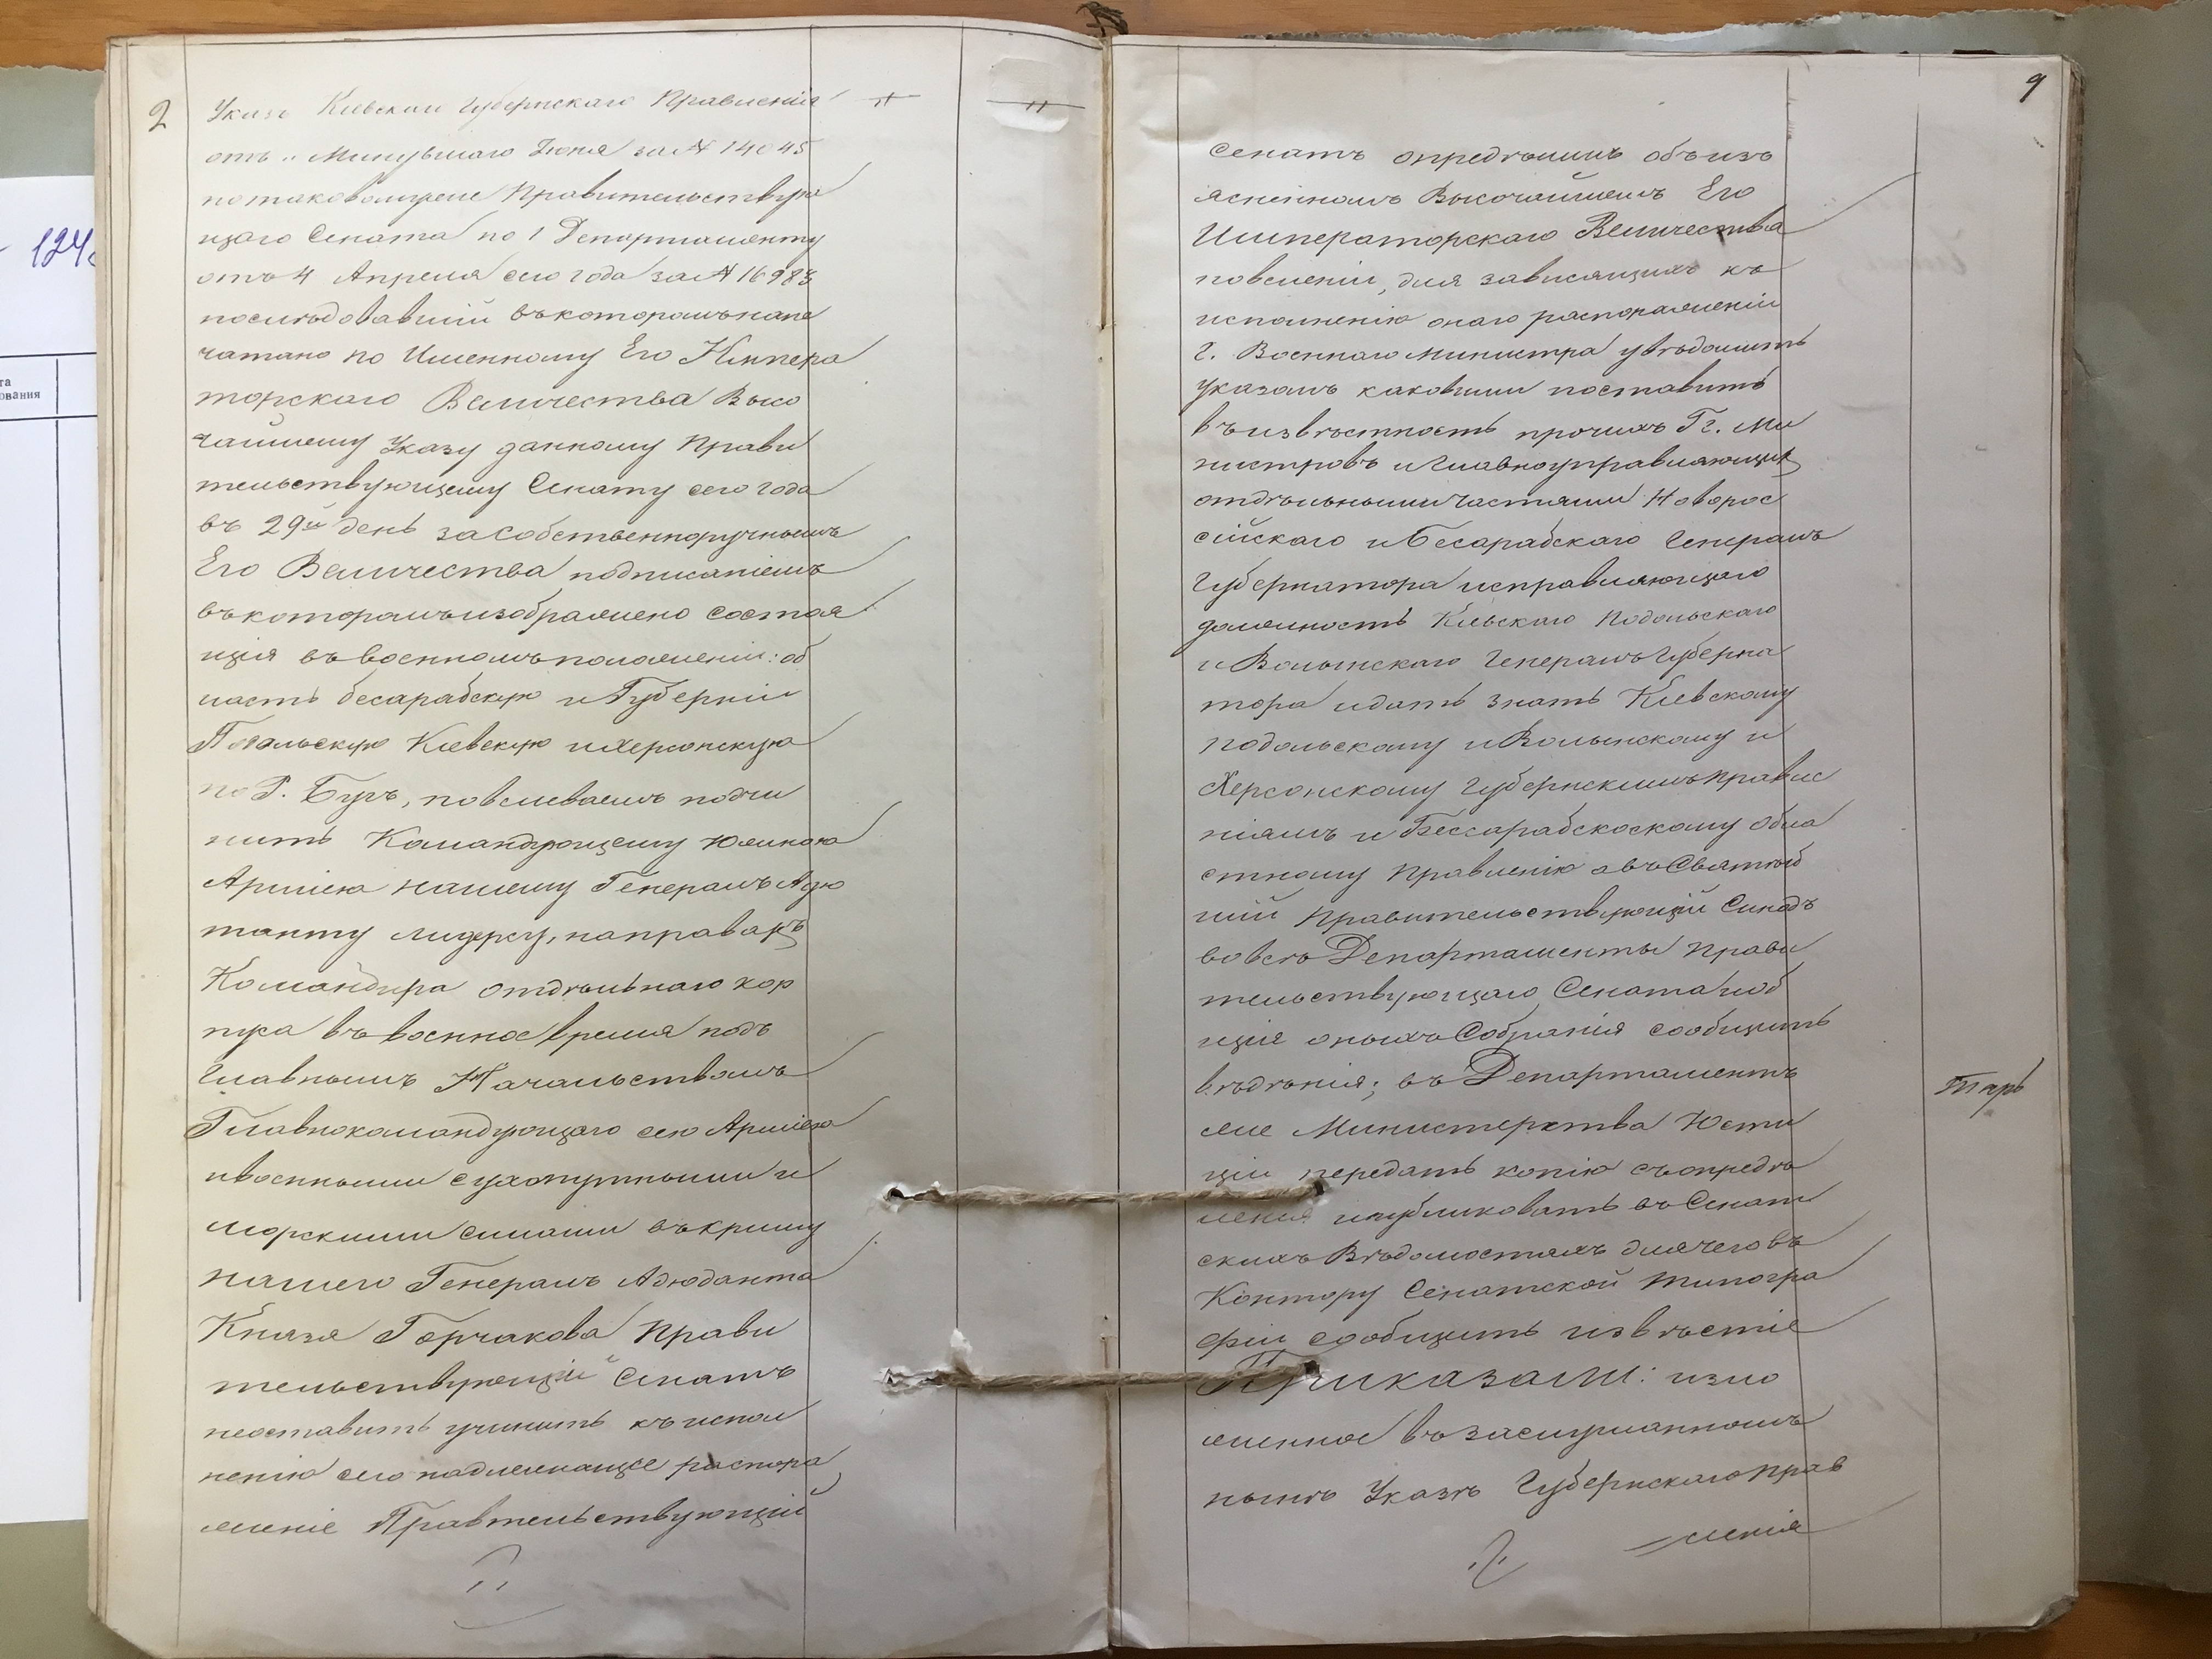 124
та
ования
2
Указъ Кіевскаи Губернскаго Правленія
отъ „ Минувшаго Іюня за № 14045
потаковомуже Правительствую
щаго Сената по 1 Департаменту
отъ 4 Апреля сего года за №
послѣдовавшій въкоторомънапе
чатано по Именному Его Импера
торскаго Величества Высо
чайшему Указу данному Прави
тельствующему Сенату сего года
въ 29й день засобственноручнымъ
Его Величества подписаніемъ
въкоторомъизображено состоя
щія въвоенномъположеніи: об
ласть бесарабскую и Губерніи
Подольскую Кіевскую иХерсонскую
по Р. Бугъ, повелеваемъ подчи
нить Командующему Южною
Арміею нашему Генералъ Адю
танту лидерсу, направахъ
Командира отдѣльнаго кор
пуса въвоенное время подъ
Главнымъ Начальствомъ
Главнокомандующаго сею Арміею
ивоенными сухопутными и
морскими силами въкриму
нашего Генералъ Адюданта
Князя Горчакова Прави
тельствующій Сенатъ
неоставитъ учинить къиспол
ненію сего надлежащее распоря
женіе Правтельствующій
9
Сенатъ опредѣлилъ объизъ
ясненномъ Высочайшемъ Его
Императорскаго Величества
повеленіи, для зависящихъ къ
исполненію онаго распоряженіи
Г. Военнаго министра увѣдомить
указомъ каковыми поставить
въизвѣстность прочихъ Гг. Ми
нистровъ иГлавноуправляющихъ
отдѣльнымичастями Новорос
сійскаго иБесарабскаго Генералъ
Губернатора исправляющаго
должность Кіевскаго Подольскаго
и Волынскаго ГенералъГуберна
тора идать знать Кіевскому
подольскому иВолынскому и
Херсонскому Губернскимъправле
ніямъ и Бессарабскоскому Обла
стному Правленію авъСвятѣй
шій Правительствующій Синодъ
вовсѣ Департаменты Прави
тельствующаго Сената иоб
щія оныхъСобранія сообщить
вѣдѣнія; въ Департаментъ
же Министерства Юсти
ціи передать копію съопредѣ
ленія ипубликовать въСенат
скихъ Вѣдомостяхъ длячеговъ
Контору Сенатской типогра
фіи сообщить извѣстіе
Приказали: изло
женное възаслушанномъ
нынѣ Указѣ Губернскагоправ
ленія